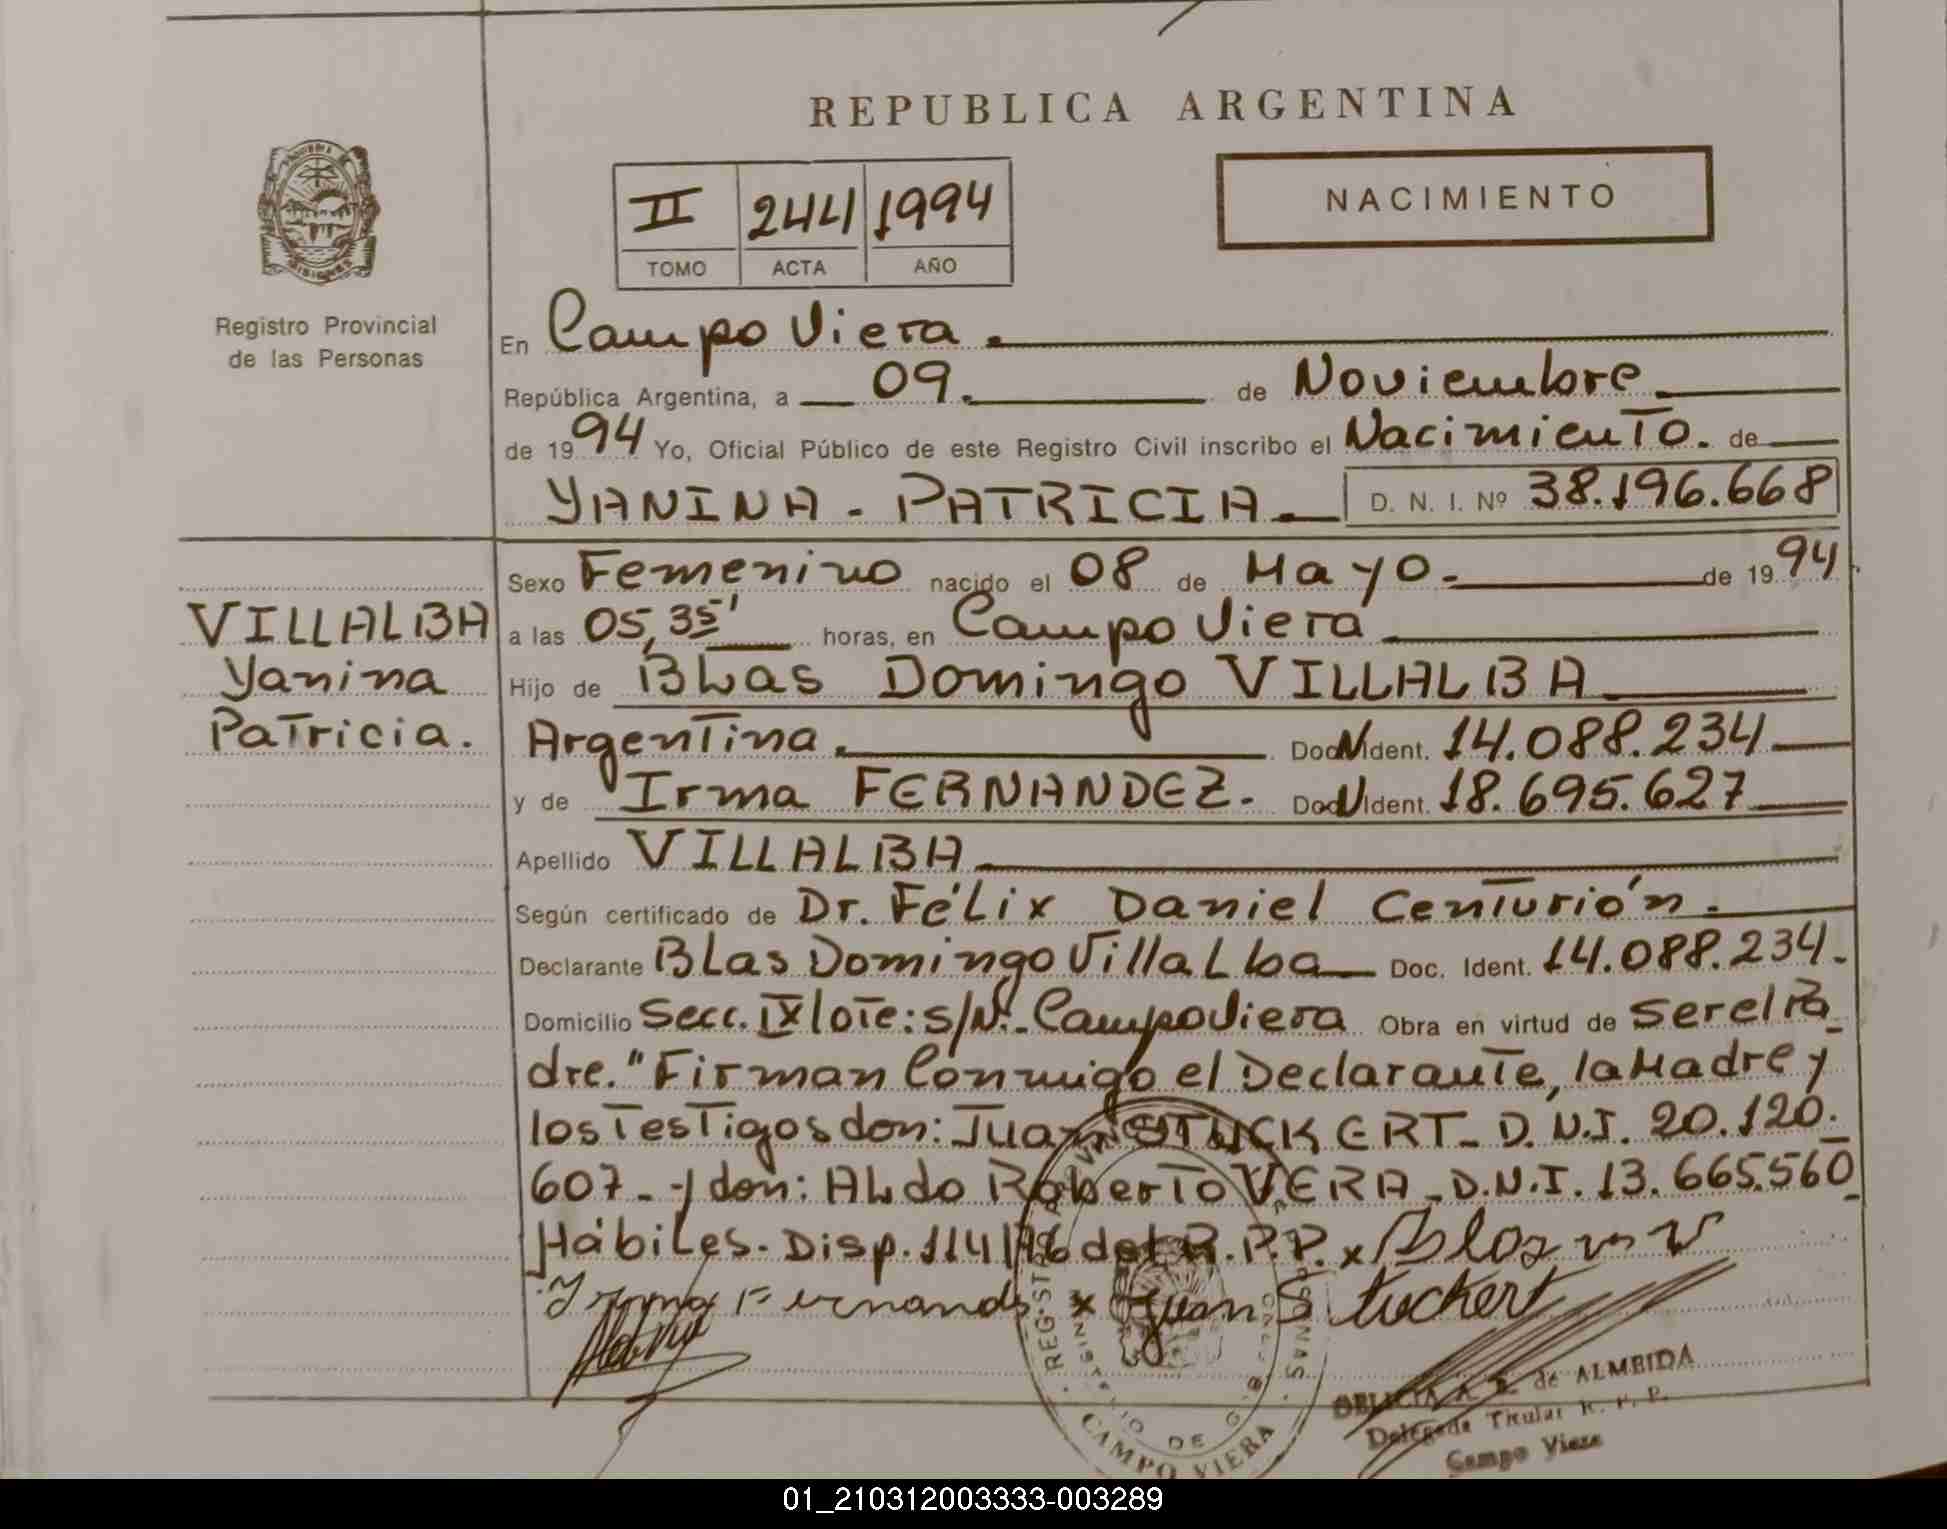 REPUBLICA ARGENTINA
II 244 1994
TOMO ACTA AÑO
NACIMIENTO
Registro Provincial
de las Personas
En Campo Viera.
República Argentina, a 09. de Noviembre
de 1994 Yo, Oficial Público de este Registro Civil inscribo el Nacimiento. de
YANINA - PATRICIA. D. N. I. Nº 38.196.668
Sexo Femenino nacido el 08 de Mayo. de 1994
VILLALBA
Yanina
Patricia.
a las 05,35' horas, en Campo Viera
Hijo de Blas Domingo VILLALBA
Argentina. Doc. Ident. 14.088.234
y de Irma FERNANDEZ. Doc. Ident. 18.695.627
Apellido VILLALBA
Según certificado de Dr. Félix Daniel Centurión.
Declarante Blas Domingo Villalba Doc. Ident. 14.088.234.
Domicilio Secc. IX lote: s/N. Campo Viera Obra en virtud de ser el Pa
dre. "Firman Conmigo el Declarante, la Madre y
los Testigos don: Juan STUCKERT- D.N.I. 20.120.
607- y don: Aldo Roberto VERA- D.N.I. 13.665.560
Hábiles. Disp. 114/76 del R.P.P. x Blas
Irma Fernand x Juan Stuckert
CAMPO VIERA
A. de ALMEIDA
Delegada Titular R. P. P.
Campo Viera
01_210312003333-003289